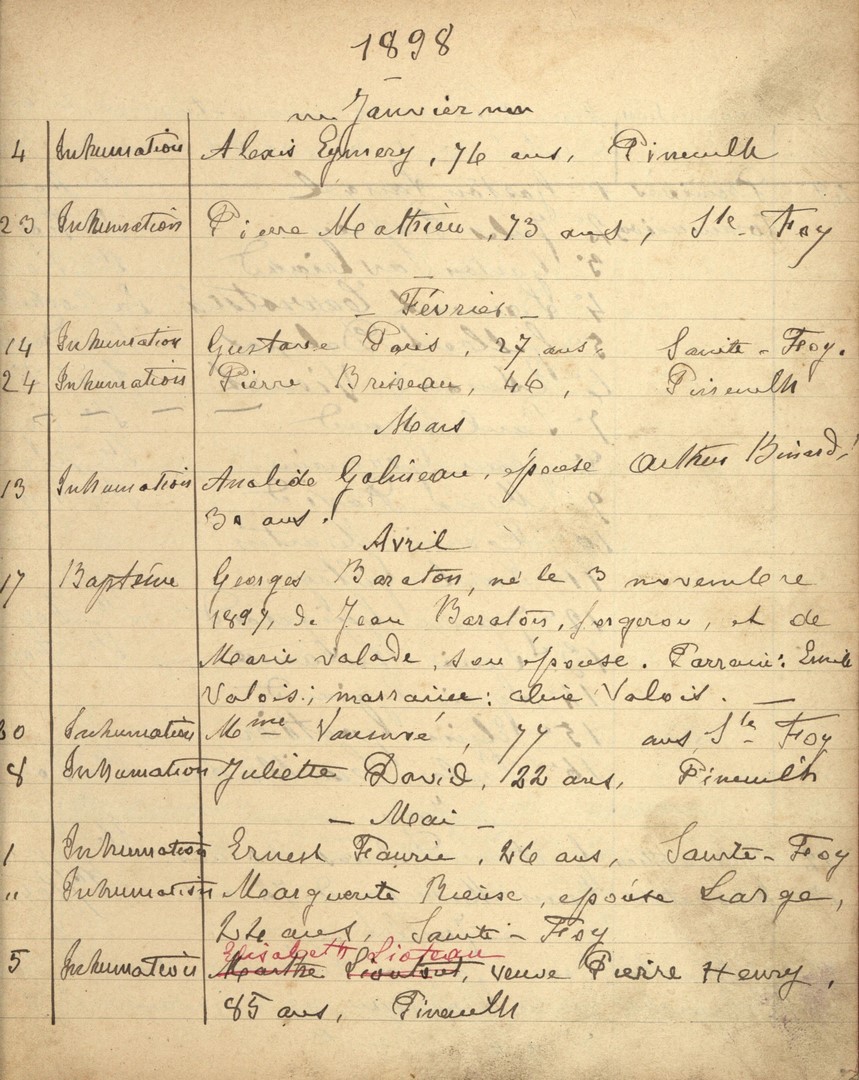 1898
Janvier
4 Inhumation Alexis Eymery, 76 ans, Pineuilh
23 Inhumation Pierre Mathieu, 73 ans, Ste-Foy
- Février -
14 Inhumation Gustave Paris, 27 ans, Sainte-Foy.
24 Inhumation Pierre Brisseau, 46, Pineuilh
Mars
13 Inhumation Galineau, épouse Arthur
30 ans.
Avril
17 Baptême Georges Baraton, né le 3 novembre
1897, de Jean Baraton, forgeron, et de
Marie Valade, son épouse. Parrain: Emile
Valois; marraine: Aline Valois.
Inhumation Mme 77 ans, Ste Foy
8 Inhumation Juliette David, 22 ans, Pineuilh
- Mai -
1 Inhumation Ernest Faurie, 26 ans, Sainte-Foy
" Inhumation Marguerite épouse Large,
24 ans, Sainte-Foy
Elisabeth Lioteau
5 Inhumation Marthe veuve Pierre Henry,
85 ans, Pineuilh